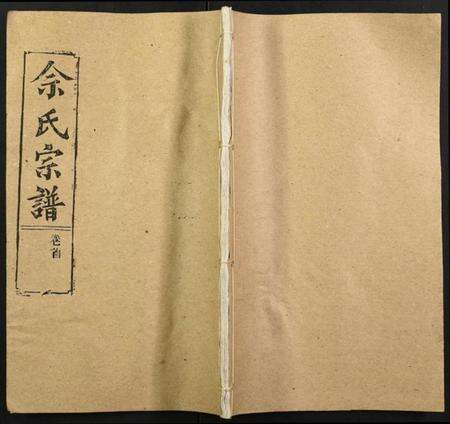 佘氏宗譜
卷首